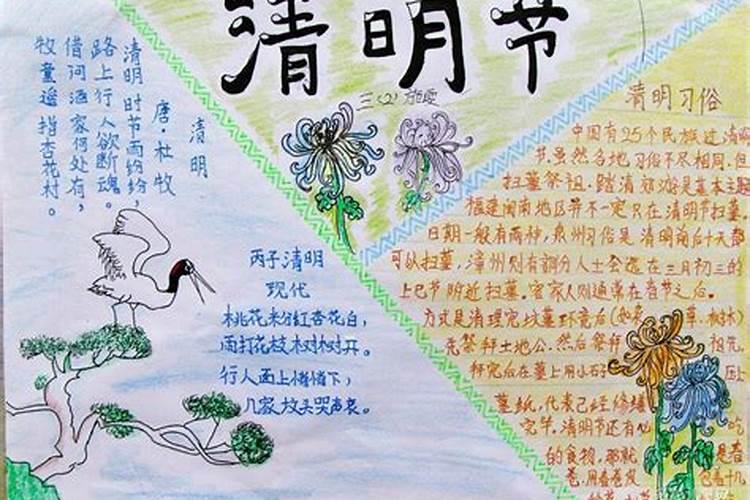 清明节
三(2)
清明
唐·杜牧
清明时节雨纷纷,
路上行人欲断魂。
借问酒家何处有,
牧童遥指杏花村。
丙子清明
现代
桃花粉红杏花白,
雨打花枝树树开。
行人面上悄悄下,
几家坟头哭声哀。
清明习俗
中国有25个民族过清明
节.虽然各地习俗不尽相同.但
扫墓祭祖.踏清郊游是基本主题
福建闽南地区并不一定只在清明节扫墓,
日期一般有两种,泉州习俗是清明前后十天都
可以扫墓,漳州则有部分人士会选在三月初三的
上巳节附近扫墓。客家人则通常在春节之后。
方式是清理完坟墓环境后(如 草.树木)
先祭拜土地公.然后祭拜 祖先.
拜完后在墓上用小石 压上
墓纸,代表已经修缮
完毕.清明节还有 吃
的食物,那就 是春
卷.用春卷皮 包着